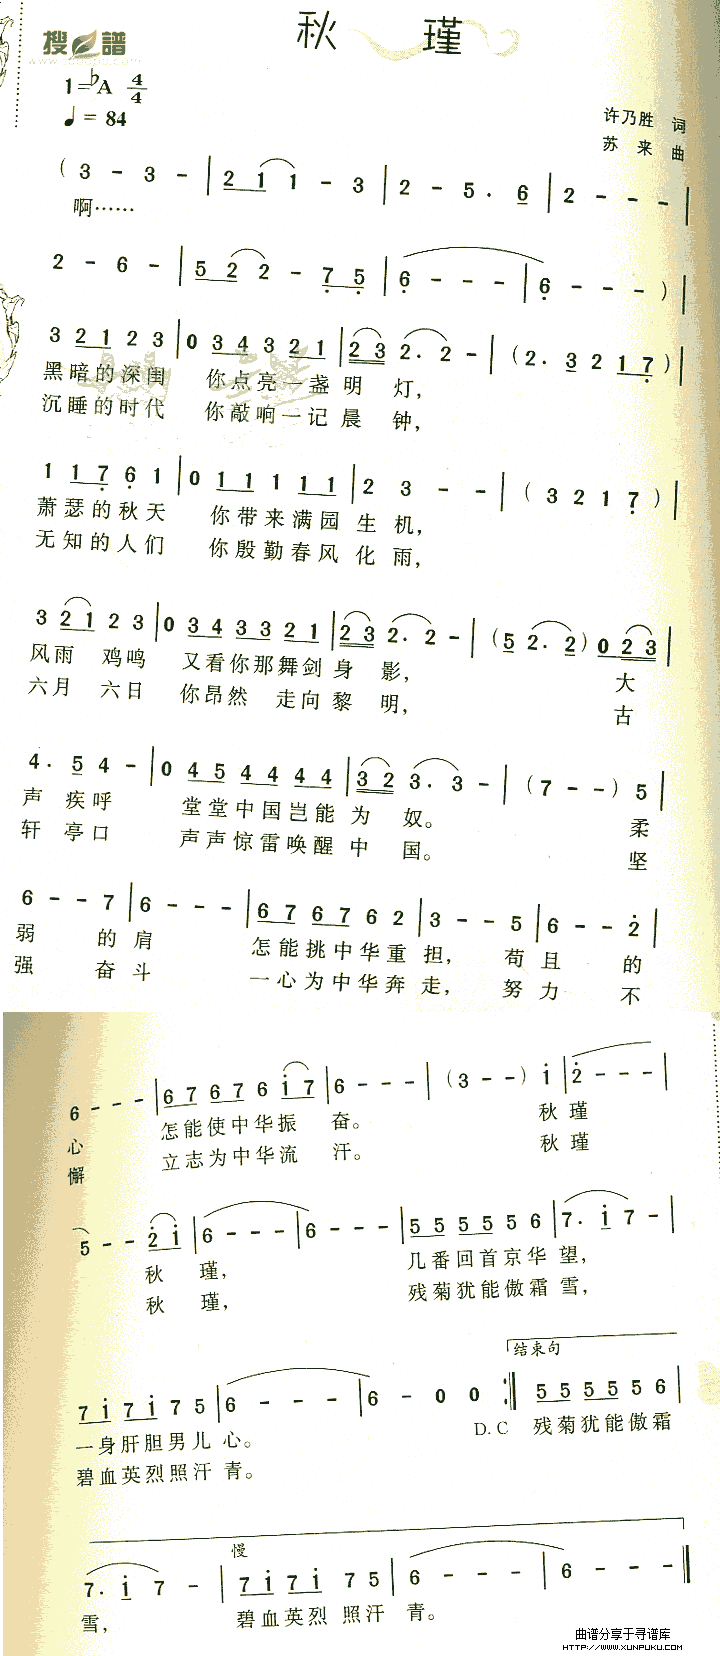 搜谱
秋 瑾
1=♭A 4/4
♩= 84
许乃胜 词
苏 来 曲
( 3 - 3 - | 2 1 1 - 3 | 2 - 5 . 6 | 2 - - - |
啊……
2 - 6 - | 5 2 2 - 7 5 | 6 - - - | 6 - - - ) |
3 2 1 2 3 | 0 3 4 3 2 1 | 2 3 2 . 2 - | ( 2 . 3 2 1 7 |
黑暗的深闺 你点亮一盏明 灯，
沉睡的时代 你敲响一记晨 钟，
1 1 7 6 1 | 0 1 1 1 1 1 | 2 3 - - | ( 3 2 1 7 ) |
萧瑟的秋天 你带来满园生 机，
无知的人们 你殷勤春风化 雨，
3 2 1 2 3 | 0 3 4 3 3 2 1 | 2 3 2 . 2 - | ( 5 2 . 2 ) 0 2 3 |
风雨 鸡鸣 又看你那舞剑身 影， 大
六月 六日 你昂然 走向黎 明， 古
4 . 5 4 - | 0 4 5 4 4 4 4 | 3 2 3 . 3 - | ( 7 - - ) 5 |
声 疾呼 堂堂中国岂能为 奴。 柔
轩 亭口 声声惊雷唤醒中 国。 坚
6 - - 7 | 6 - - - | 6 7 6 7 6 2 | 3 - - 5 | 6 - - 2 |
弱 的肩 怎能挑中华重担， 苟且 的
强 奋斗 一心为中华奔走， 努力 不
6 - - - | 6 7 6 7 6 i 7 | 6 - - - | ( 3 - - ) i | 2 - - - |
心 怎能使中华振 奋。 秋瑾
懈 立志为中华流 汗。 秋瑾
5 - - 2 i | 6 - - - | 6 - - - | 5 5 5 5 5 6 | 7 . i 7 - |
秋 瑾， 几番回首京华望，
秋 瑾， 残菊犹能傲霜雪，
结束句
7 i 7 i 7 5 | 6 - - - | 6 - 0 0 :‖ 5 5 5 5 5 6 |
一身肝胆男儿 心。 D.C 残菊犹能傲霜
碧血英烈照汗 青。
慢
7 . i 7 - | 7 i 7 i 7 5 | 6 - - - | 6 - - - ‖
雪， 碧血英烈 照汗 青。
曲谱分享于寻谱库
HTTP://WWW.XUNPUKU.COM